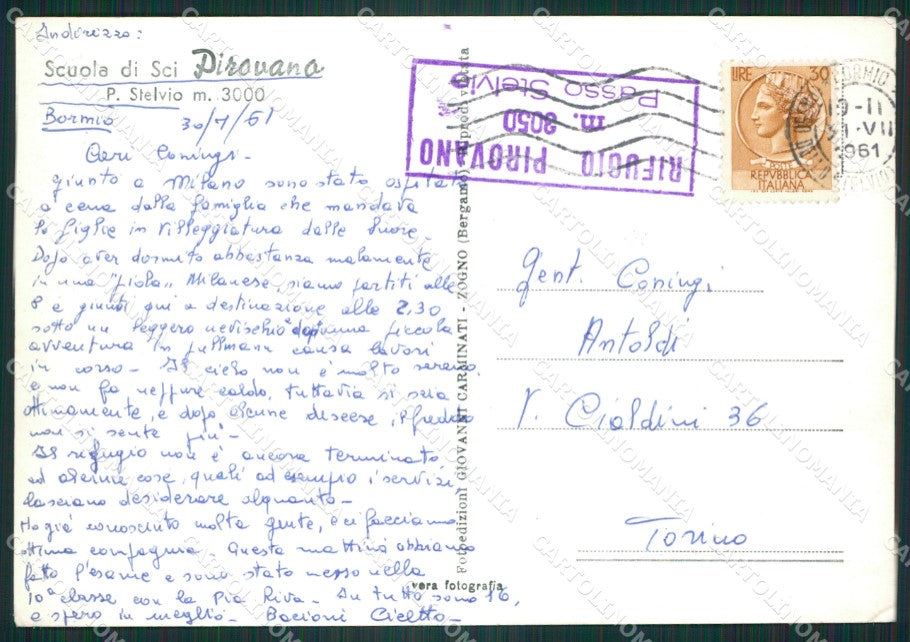 Indirizzo:
Scuola di Sci Pirovano
P. Stelvio m. 3000
Bormio 30/7/61
Cari Coningi -
giunto a Milano sono stato ospitato
a cena dalla famiglia che mandava
le figlie in villeggiatura dalle suore.
Dopo aver dormito abbastanza malamente
in una "piola" Milanese, siamo partiti alle
8 e giunti qui a destinazione alle 2,30
sotto un leggero nevischio dopo una piccola
avventura in pullmann causa lavori
in corso - Il cielo non è molto sereno
e non fa neppure caldo, tuttavia si scia
ottimamente, e dopo alcune discese, il freddo
non si sente più -
Il rifugio non è ancora terminato
ed alcune cose, quali ad esempio i servizi,
lasciano desiderare alquanto -
Ho già conosciuto molta gente, e ci facciamo
ottima compagnia - Questa mattina abbiamo
fatto l'esame e sono stato messo nella
10ª classe con la Pia Riva - In tutto sono 16,
e spero in meglio - Bacioni Ciclotto -
RIFUGIO PIROVANO
m. 3050
Passo Stelvio
LIRE 30
POSTE
REPVBBLICA
ITALIANA
BORMIO
19-11
31-VII
1961
Gent. Coningi
Antoldi
V. Cialdini 36
Torino
Fotoedizioni GIOVANNI CARMINATI - ZOGNO (Bergamo) Riprod. vietata
vera fotografia
CARTOLINOMANIA